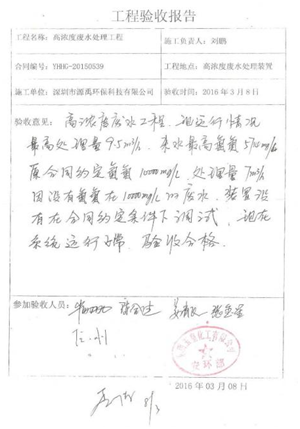 工程验收报告
工程名称：高浓度废水处理工程 施工负责人：刘鹏
合同编号：YHHG-20150539 工程地点：高浓度废水处理装置
施工单位：深圳市源禹环保科技有限公司 验收时间：2016年3月8日
验收意见：高浓度废水工程，现运行情况
最高处理量9.5m³/h，来水最高氨氮570mg/L
原合同约定氨氮10000mg/L，处理量7m³/h
因没有氨氮在10000mg/L的废水，装置没
有在合同约定条件下调试，现在
系统运行正常，验收合格。
参加验收人员：
安环部
2016年03月08日